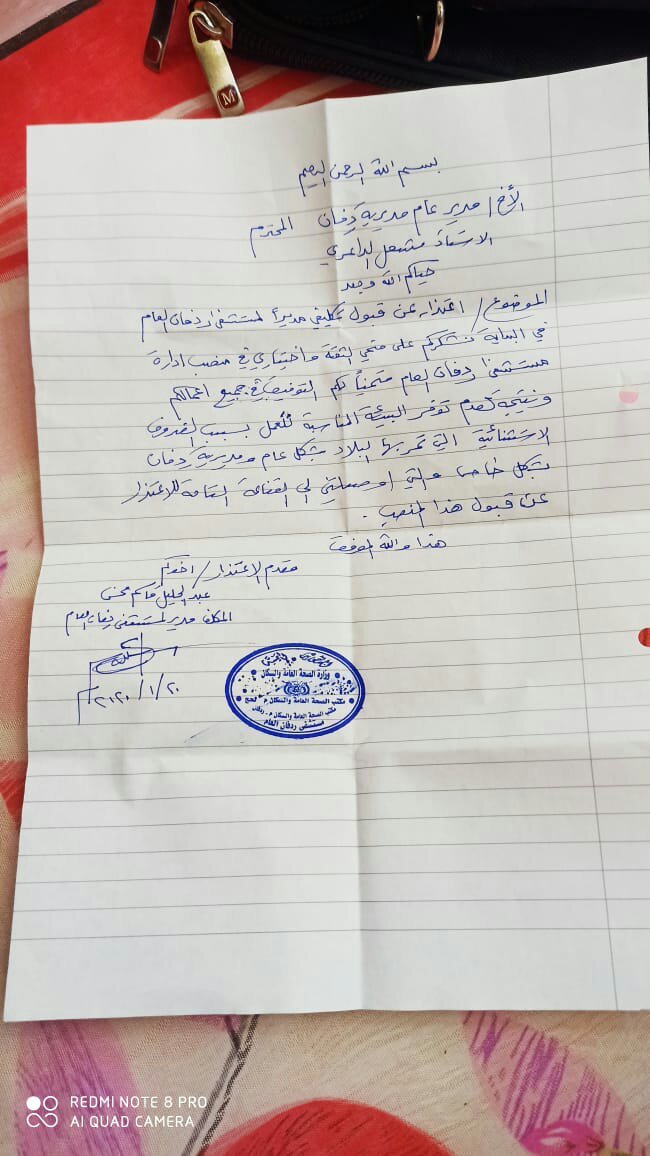 M
بسم الله الرحمن الرحيم
الأخ / مدير عام مديرية ردفان المحترم
الاستاذ مشعل الداعري
حياكم الله وبعد
الموضوع / اعتذار عن قبول تكليفي مديراً لمستشفى ردفان العام
في البداية نشكركم على منحي الثقة واختياري في منصب ادارة
مستشفى ردفان العام متمنياً لكم التوفيق في جميع اعمالكم
ونتيجة لعدم توفر البيئة المناسبة للعمل بسبب الضروف
الاستثنائية التي تمر بها البلاد بشكل عام ومديرية ردفان
بشكل خاص والتي اوصلتني الى القناعة التامة للاعتذار
عن قبول هذا المنصب .
هذا والله الموفق
مقدم الاعتذار / اخوكم
عبد الجليل قاسم محسن
المكلف مدير لمستشفى ردفان العام
٢٠٢٠/١/٢٠م
وزارة الصحة العامة والسكان
مكتب الصحة العامة والسكان م لحج
مكتب الصحة العامة والسكان م - ردفان
مستشفى ردفان العام
REDMI NOTE 8 PRO
AI QUAD CAMERA